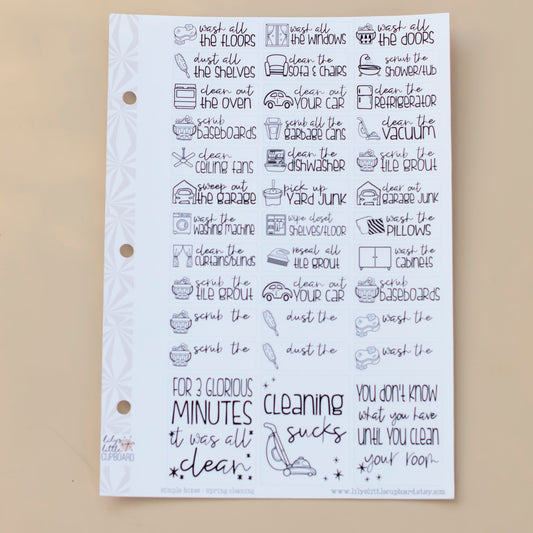 wash all
the floors
wash all
the windows
wash all
the doors
dust all
the shelves
clean the
sofa & chairs
scrub the
shower/tub
clean out
the oven
clean out
your car
clean the
refrigerator
scrub
baseboards
scrub all the
garbage cans
clean the
vacuum
clean
ceiling fans
clean the
dishwasher
scrub the
tile grout
sweep out
the garage
pick up
yard junk
clear out
garage junk
wash the
washing machine
wipe closet
shelves/floor
wash the
pillows
clean the
curtains/blinds
reseal all
tile grout
wash the
cabinets
scrub the
tile grout
clean out
your car
scrub
baseboards
scrub the
dust the
wash the
scrub the
dust the
wash the
FOR 3 GLORIOUS
MINUTES
it was all
clean
cleaning
sucks
YOU DON'T KNOW
what you have
UNTIL YOU CLEAN
your room
lily's
little
CUPBOARD
simple boxes - spring cleaning
www.lilyslittlecupboard.etsy.com